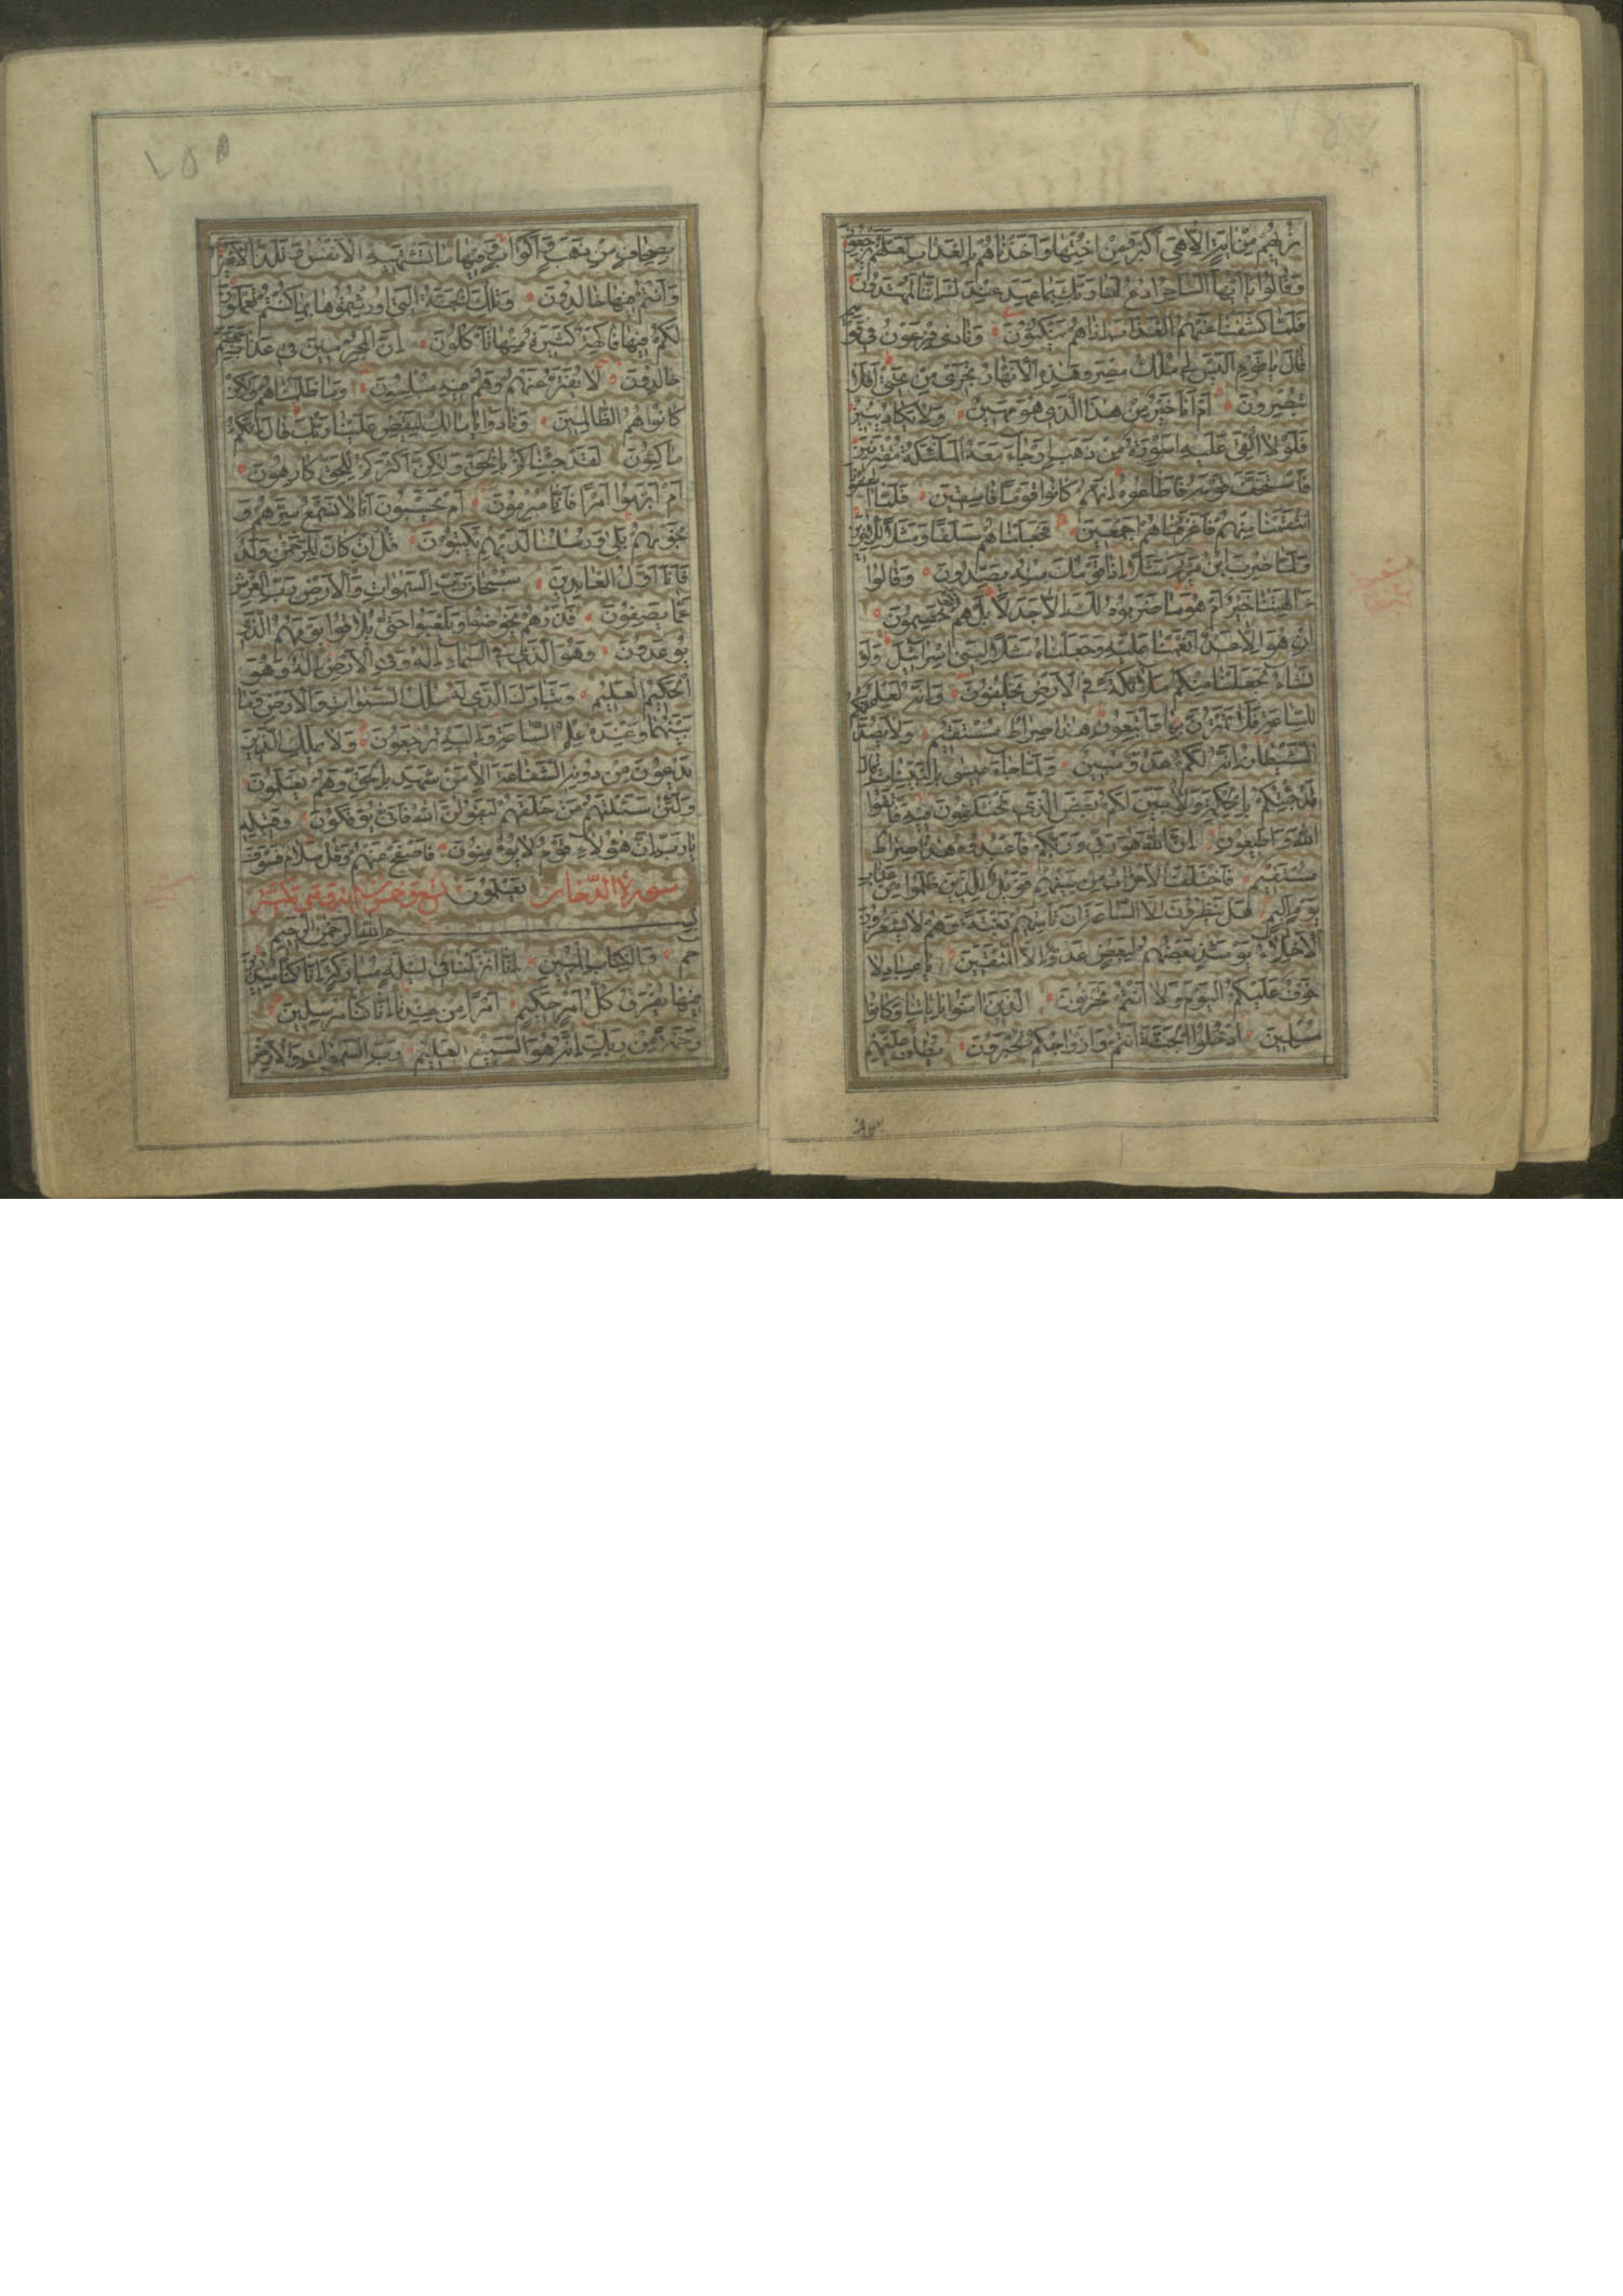 نريهم من اية الا هى اكبر من اختها واخذناهم بالعذاب لعلهم يرجعون
وقالوا يا ايها الساحر ادع لنا ربك بما عهد عندك اننا لمهتدون
فلما كشفنا عنهم العذاب اذا هم ينكثون ونادى فرعون فى قومه
قال يا قوم اليس لى ملك مصر وهذه الانهار تجرى من تحتى افلا
تبصرون ام انا خير من هذا الذى هو مهين ولا يكاد يبين
فلولا القى عليه اسورة من ذهب او جاء معه الملئكة مقترنين
فاستخف قومه فاطاعوه انهم كانوا قوما فاسقين فلما اسفونا
انتقمنا منهم فاغرقناهم اجمعين فجعلناهم سلفا ومثلا للاخرين
ولما ضرب ابن مريم مثلا اذا قومك منه يصدون وقالوا
ءالهتنا خير ام هو ما ضربوه لك الا جدلا بل هم قوم خصمون
ان هو الا عبد انعمنا عليه وجعلناه مثلا لبنى اسرائيل ولو
نشاء لجعلنا منكم ملائكة فى الارض يخلفون وانه لعلم
للساعة فلا تمترن بها واتبعون هذا صراط مستقيم ولا يصدنكم
الشيطان انه لكم عدو مبين ولما جاء عيسى بالبينات قال
قد جئتكم بالحكمة ولابين لكم بعض الذى تختلفون فيه فاتقوا
الله واطيعون ان الله هو ربى وربكم فاعبدوه هذا صراط
مستقيم فاختلف الاحزاب من بينهم فويل للذين ظلموا من عذاب
يوم اليم هل ينظرون الا الساعة ان تاتيهم بغتة وهم لا يشعرون
الاخلاء يومئذ بعضهم لبعض عدو الا المتقين يا عباد لا
خوف عليكم اليوم ولا انتم تحزنون الذين امنوا باياتنا وكانوا
مسلمين ادخلوا الجنة انتم وازواجكم تحبرون يطاف عليهم
١٥٨
بصحاف من ذهب واكواب وفيها ما تشتهيه الانفس وتلذ الاعين
وانتم فيها خالدون وتلك الجنة التى اورثتموها بما كنتم تعملون
لكم فيها فاكهة كثيرة منها تاكلون ان المجرمين فى عذاب جهنم
خالدون لا يفتر عنهم وهم فيه مبلسون وما ظلمناهم ولكن
كانوا هم الظالمين ونادوا يا مالك ليقض علينا ربك قال انكم
ماكثون لقد جئناكم بالحق ولكن اكثركم للحق كارهون
ام ابرموا امرا فانا مبرمون ام يحسبون انا لا نسمع سرهم و
نجويهم بلى ورسلنا لديهم يكتبون قل ان كان للرحمن ولد
فانا اول العابدين سبحان رب السموات والارض رب العرش
عما يصفون فذرهم يخوضوا ويلعبوا حتى يلاقوا يومهم الذى
يوعدون وهو الذى فى السماء اله وفى الارض اله وهو
الحكيم العليم وتبارك الذى له ملك السموات والارض وما
بينهما وعنده علم الساعة واليه ترجعون ولا يملك الذين
يدعون من دونه الشفاعة الا من شهد بالحق وهم يعلمون
ولئن سئلتهم من خلقهم ليقولن الله فانى يؤفكون وقيله
يا رب ان هؤلاء قوم لا يؤمنون فاصفح عنهم وقل سلام فسوف
سورة الدخان يعلمون تسع وخمسون اية وهى مكية
بسم الله الرحمن الرحيم
حم والكتاب المبين انا انزلناه فى ليلة مباركة انا كنا منذرين
فيها يفرق كل امر حكيم امرا من عندنا انا كنا مرسلين
رحمة من ربك انه هو السميع العليم رب السموات والارض